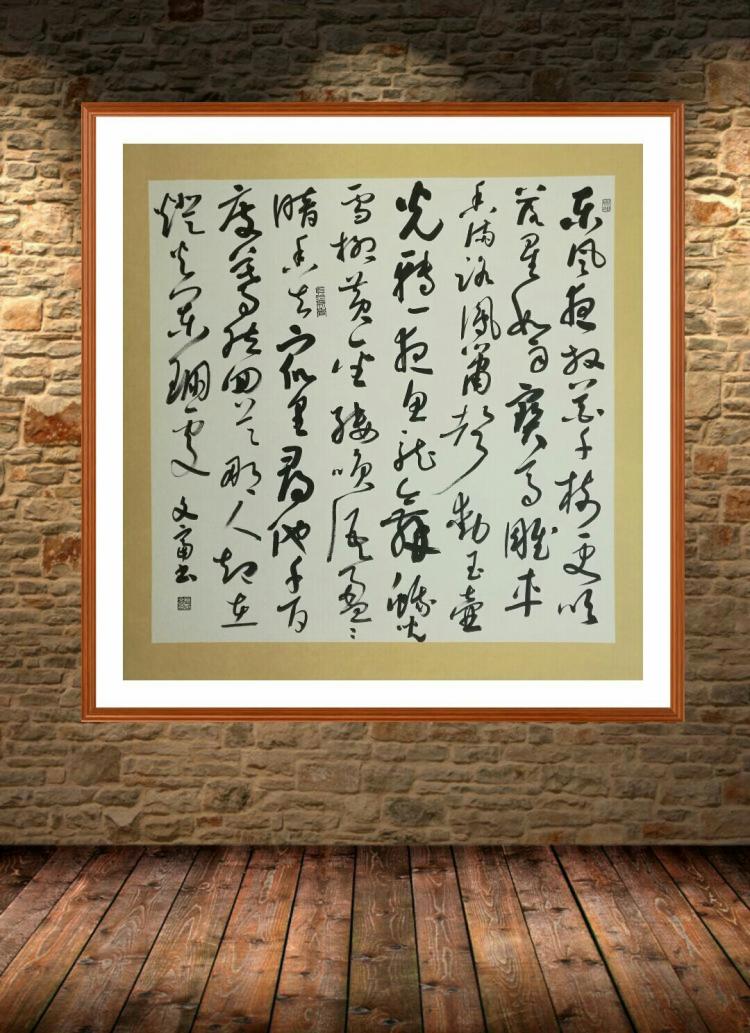 东风夜放花千树更吹
落星如雨寶馬雕車
香满路鳳箫声動玉壶
光轉一夜鱼龙舞蛾儿
雪柳黄金缕笑语盈〻
暗香去众里尋他千百
度蓦然回首那人却在
燈火阑珊處
文富书